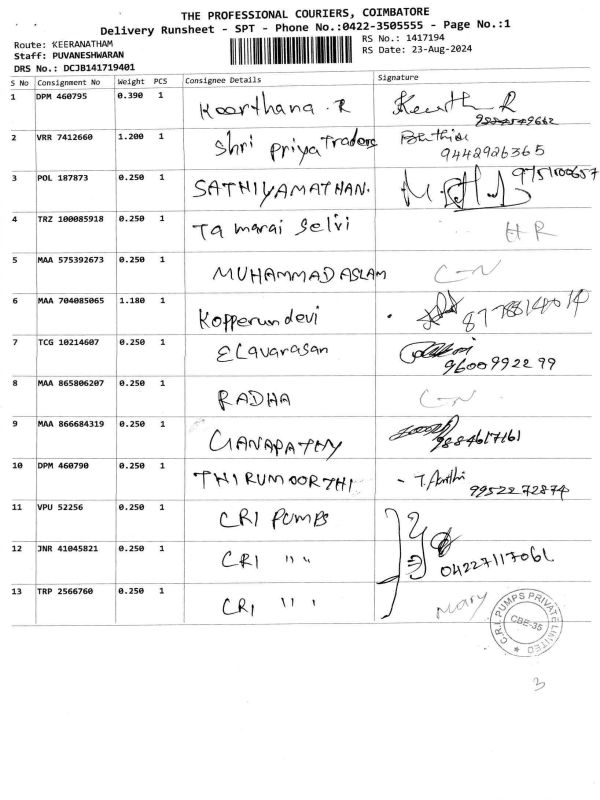 THE PROFESSIONAL COURIERS, COIMBATORE
Delivery Runsheet - SPT - Phone No.:0422-3505555 - Page No.:1
Route: KEERANATHAM
RS No.: 1417194
Staff: PUVANESHWARAN
RS Date: 23-Aug-2024
DRS No.: DCJB141719401
S No Consignment No Weight PCS Consignee Details Signature
1 DPM 460795 0.390 1 Keerthana .R R
2 VRR 7412660 1.200 1 Shri Priya Traders 9442926365
3 POL 187873 0.250 1 SATHIYAMATHAN. 9751100657
4 TRZ 100085918 0.250 1 Tamarai Selvi HR
5 MAA 575392673 0.250 1 MUHAMMAD ASLAM C-N
6 MAA 704085065 1.180 1 Kopperundevi
7 TCG 10214607 0.250 1 Elavarasan 9600992299
8 MAA 865806207 0.250 1 RADHA C-N
9 MAA 866684319 0.250 1 GANAPATHY 9884617161
10 DPM 460790 0.250 1 THIRUMOORTHI 9952272874
11 VPU 52256 0.250 1 CRI PUMPS
12 JNR 41045821 0.250 1 CRI " " 04227117061
13 TRP 2566760 0.250 1 CRI " " Mary
C.R.I. PUMPS PRIVATE LIMITED
CBE-35
3